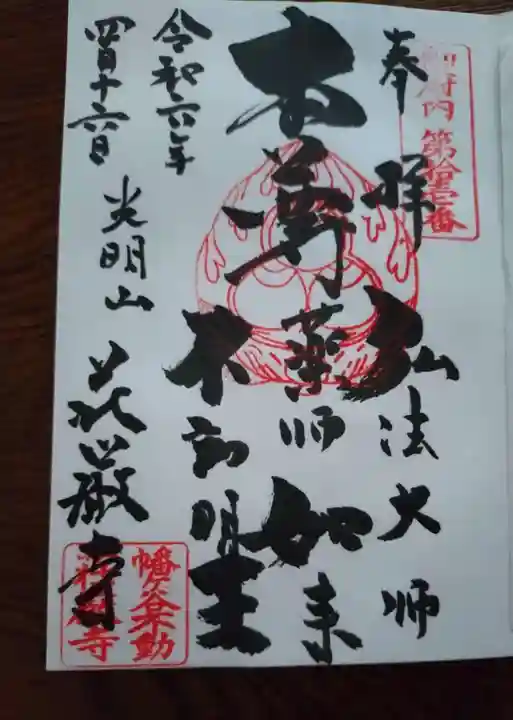 御府内第拾壱番
奉拝
弘法大師
本尊
薬師如来
不動明王
令和六年
四月十六日
光明山
荘嚴寺
幡谷不動
荘嚴寺